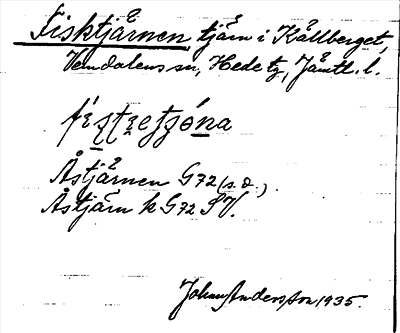 Fisktjärnen, tjärn i Kallberget,
Vemdalens sn, Hede tg, Jämtl. l.
Åstjärnen G72 (s. d.)
Åstjärn k G72 SV.
Johan Andersson 1935.